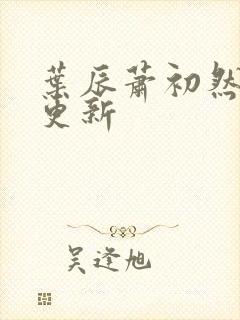 葉辰蕭初然
更新
吴逢旭